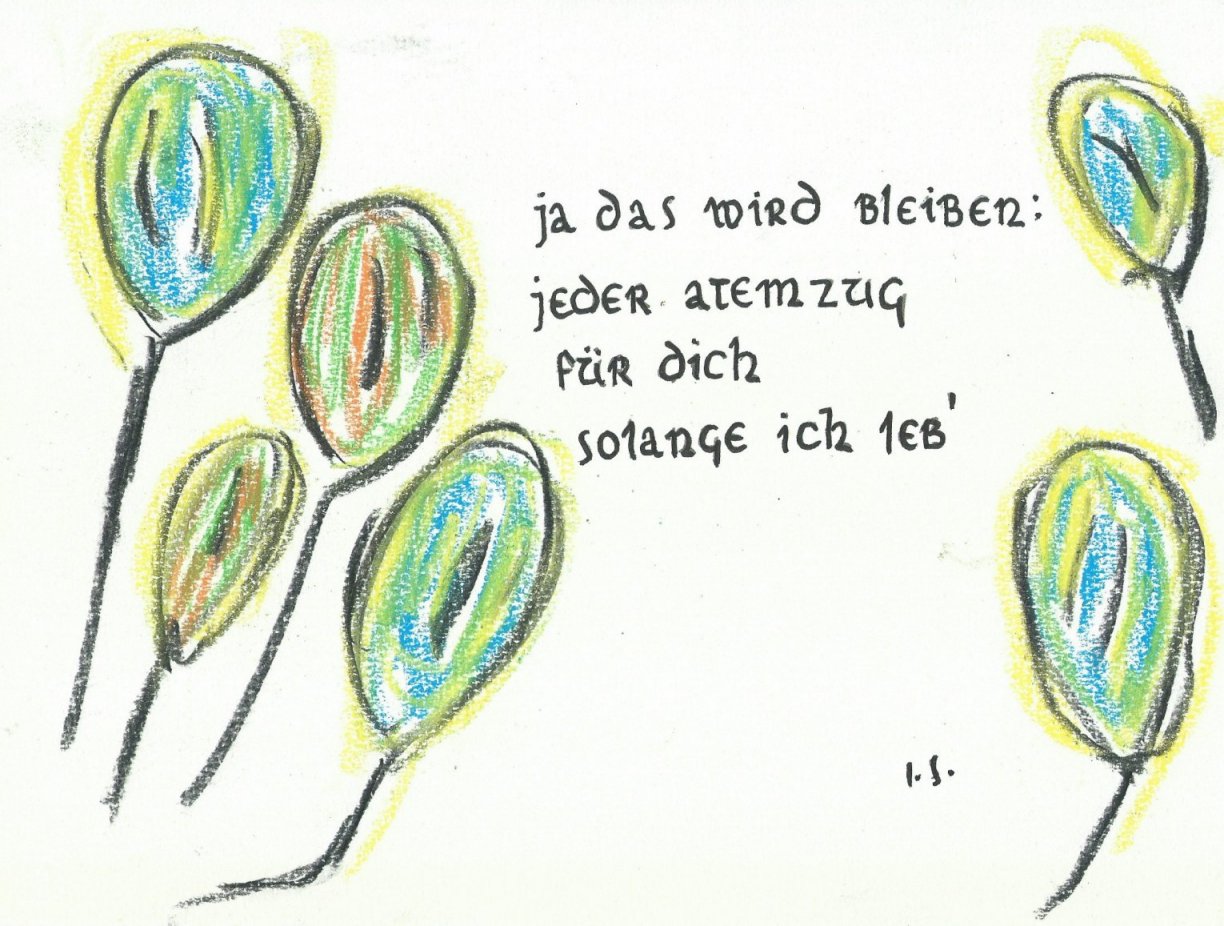 ja das wird bleiben:
jeder atemzug
für dich
solange ich leb'
I. S.